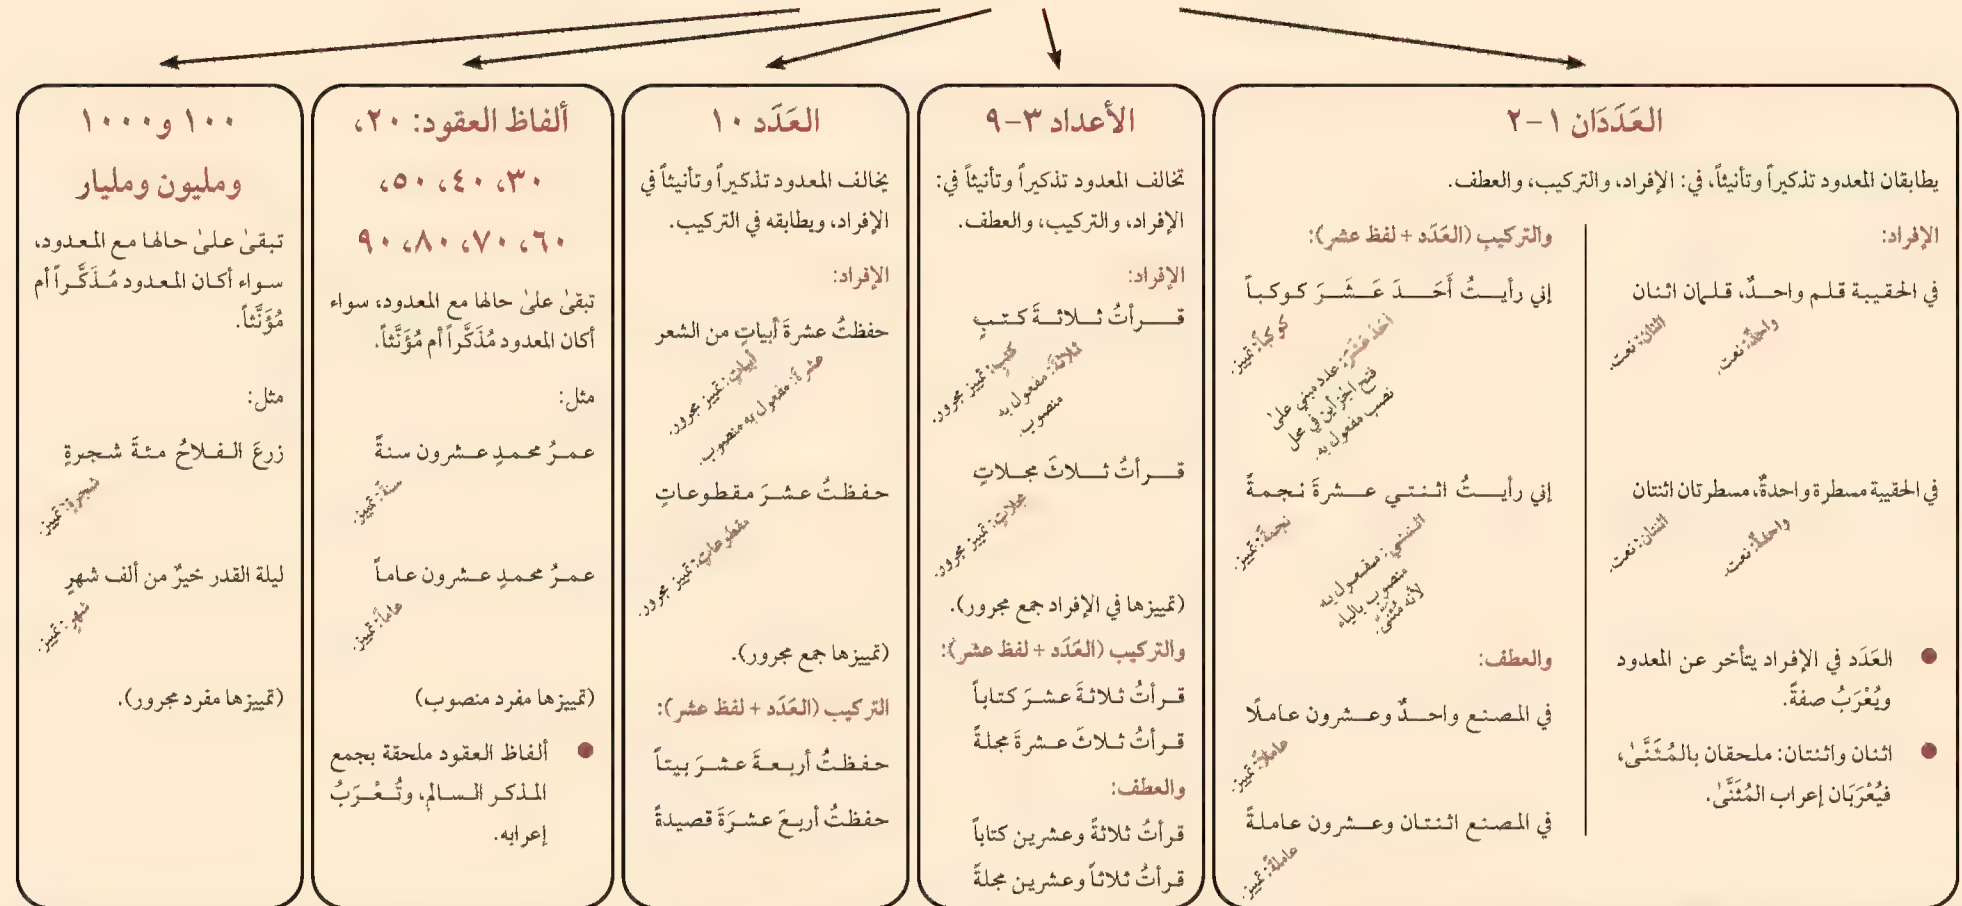 العَدَدَان ١-٢
يطابقان المعدود تذكيراً وتأنيثاً، في: الإفراد، والتركيب، والعطف.
الإفراد:
في الحقيبة قلم واحدٌ، قلمان اثنان
واحدٌ: نعت.
اثنان: نعت.
في الحقيبة مسطرة واحدةٌ، مسطرتان اثنتان
واحدةٌ: نعت.
اثنتان: نعت.
● العَدَد في الإفراد يتأخر عن المعدود
ويُعْرَبُ صفةً.
● اثنان واثنتان: ملحقان بالمُثَنَّىٰ،
فيُعْرَبَان إعراب المُثَنَّىٰ.
والتركيب (العَدَد + لفظ عشر):
إني رأيـتُ أَحَـدَ عَـشَـرَ كوكبـاً
أحَدَ عَشَرَ: عدد مبني علىٰ
فتح الجزأين في محل
نصب مفعول به.
كوكباً: تمييز.
إني رأيـتُ اثنـتي عـشـرةَ نجمـةً
اثنتي: مفعول به
منصوب بالياء
لأنه مُثَنَّىٰ.
نجمةً: تمييز.
والعطف:
في المصنع واحـدٌ وعـشرون عاملًا
عاملًا: تمييز.
في المصنع اثنـتان وعـشرون عاملـةً
عاملةً: تمييز.
الأعداد ٣-٩
تخالف المعدود تذكيراً وتأنيثاً في:
الإفراد، والتركيب، والعطف.
الإفراد:
قـرأتُ ثـلاثـةَ كتـبٍ
ثلاثةَ: مفعول به
منصوب.
كتبٍ: تمييز مجرور.
قـرأتُ ثـلاثَ مجـلاتٍ
مجلاتٍ: تمييز مجرور.
(تمييزها في الإفراد جمع مجرور).
والتركيب (العَدَد + لفظ عشر):
قرأتُ ثلاثةَ عشرَ كتاباً
قرأتُ ثلاثَ عشرةَ مجلةً
والعطف:
قرأتُ ثلاثةً وعشرين كتاباً
قرأتُ ثلاثاً وعشرين مجلةً
العَدَد ١٠
يخالف المعدود تذكيراً وتأنيثاً في
الإفراد، ويطابقه في التركيب.
الإفراد:
حفظتُ عشرةَ أبياتٍ من الشعر
عشرةَ: مفعول به منصوب.
أبياتٍ: تمييز مجرور.
حفظتُ عشرَ مقطوعاتٍ
مقطوعاتٍ: تمييز مجرور.
(تمييزها جمع مجرور).
التركيب (العَدَد + لفظ عشر):
حفظتُ أربعةَ عشرَ بيتاً
حفظتُ أربعَ عشرَةَ قصيدةً
ألفاظ العقود: ٢٠،
٣٠، ٤٠، ٥٠،
٦٠، ٧٠، ٨٠، ٩٠
تبقىٰ علىٰ حالها مع المعدود، سواء
أكان المعدود مُذَكَّراً أم مُؤَنَّثاً.
مثل:
عمـرُ محمـدٍ عـشرون سنةً
سنةً: تمييز.
عمـرُ محمـدٍ عـشرون عاماً
عاماً: تمييز.
(تمييزها مفرد منصوب)
● ألفاظ العقود ملحقة بجمع
المذكر السالم، وتُعْرَبُ
إعرابه.
١٠٠ و١٠٠٠
ومليون ومليار
تبقىٰ علىٰ حالها مع المعدود،
سواء أكان المعدود مُذَكَّراً أم
مُؤَنَّثاً.
مثل:
زرعَ الفلاحُ مئةَ شجرةٍ
شجرةٍ: تمييز.
ليلة القدر خيرٌ من ألف شهرٍ
شهرٍ: تمييز.
(تمييزها مفرد مجرور).